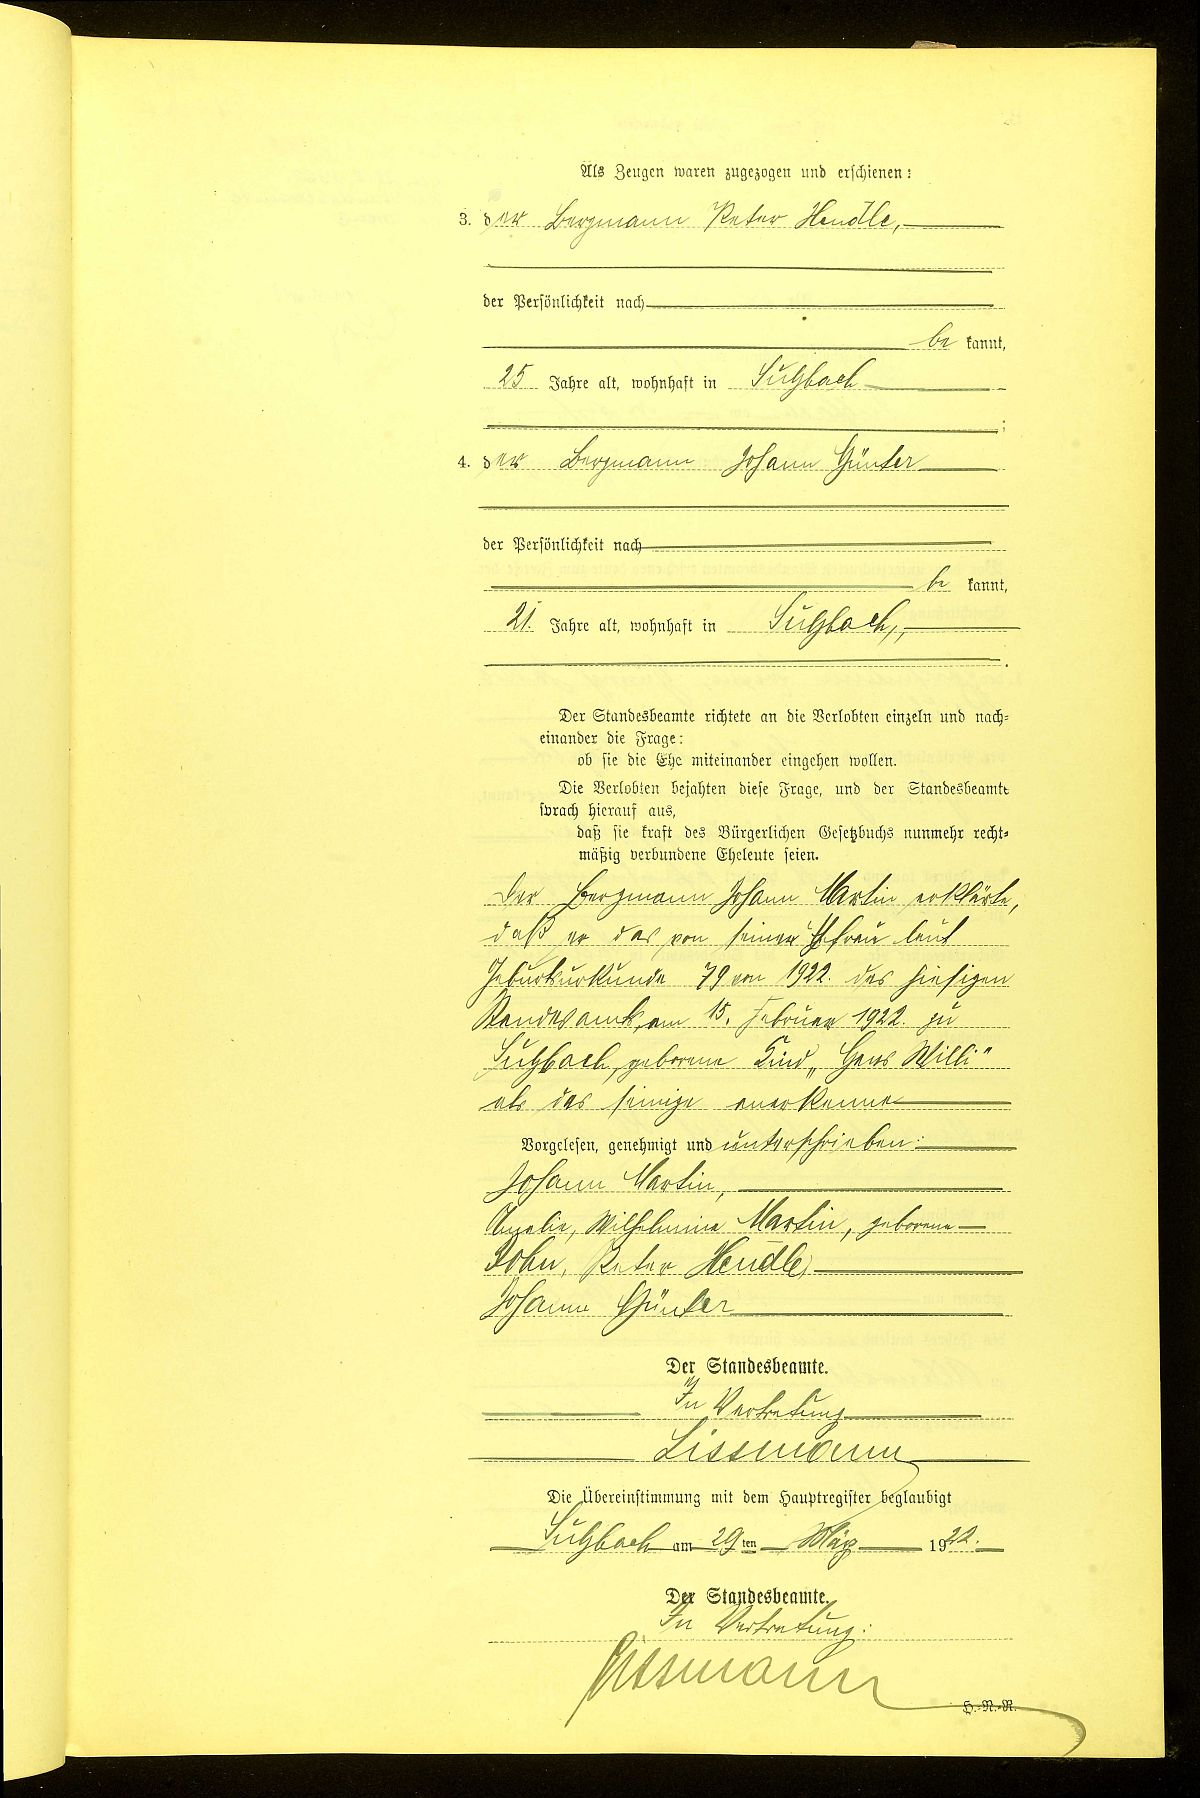 Als Zeugen waren zugezogen und erschienen:
3. der Bergmann Peter Hendle,
der Persönlichkeit nach
be kannt,
25 Jahre alt, wohnhaft in Sulzbach
;
4. der Bergmann Johann Günter
der Persönlichkeit nach
be kannt,
21. Jahre alt, wohnhaft in Sulzbach,
.
Der Standesbeamte richtete an die Verlobten einzeln und nach-
einander die Frage:
ob sie die Ehe miteinander eingehen wollen.
Die Verlobten bejahten diese Frage, und der Standesbeamte
sprach hierauf aus,
daß sie kraft des Bürgerlichen Gesetzbuchs nunmehr recht-
mäßig verbundene Eheleute seien.
Der Bergmann Johann Martin erklärte,
daß er das von seiner Ehefrau laut
Geburtsurkunde 79 von 1922. des hiesigen
Standesamts, am 15. Februar 1922. zu
Sulzbach, geborene Kind „Hans Willi"
als das seinige anerkenne
Vorgelesen, genehmigt und unterschrieben:
Johann Martin,
Amalie, Wilhelmine Martin, geborene
Peter Hendle,
Johann Günter
Der Standesbeamte.
In Vertretung
Lissmann
Die Übereinstimmung mit dem Hauptregister beglaubigt
Sulzbach am 29ten März 1922.
Der Standesbeamte.
In Vertretung:
Lissmann
H.-N.-R.